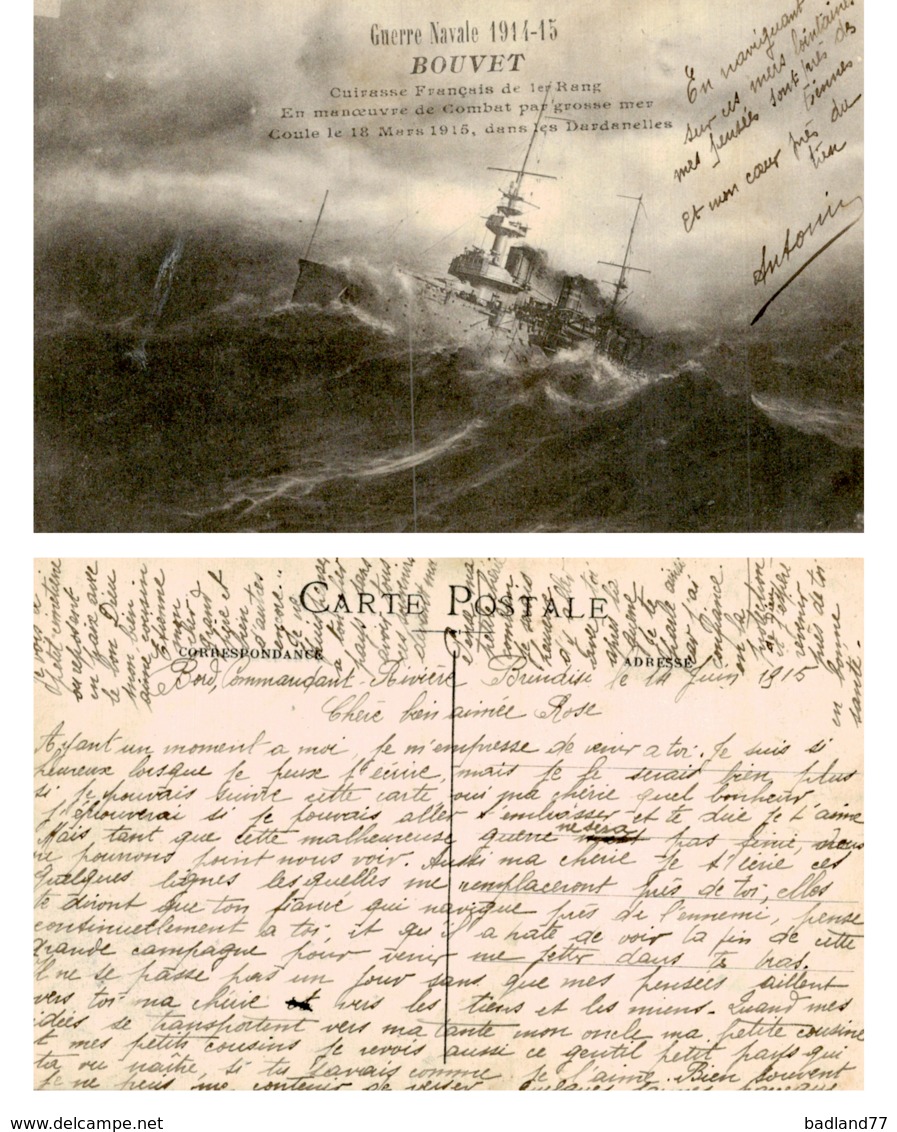 Guerre Navale 1914-15
BOUVET
Cuirasse Français de 1er Rang
En manœuvre de Combat par grosse mer
Coule le 18 Mars 1915, dans les Dardanelles
En naviguant
sur ces mers lointaines
mes pensées sont près des
tiennes
et mon cœur près du
tien
Antonin
CARTE POSTALE
CORRESPONDANCE
ADRESSE
petit cimetière
ou reposent
en paix avec
le bon Dieu
mon bien
aimé cousin
Etienne
confiance.
en la
près de toi
en bonne
santé.
Bord, Commandant-Rivière Brindisi le 14 Juin 1915
Chère bien aimée Rose
Ayant un moment a moi, je m'empresse de venir a toi. Je suis si
heureux lorsque je peux t'écrire, mais je le serais bien plus
si je pouvais suivre cette carte oui ma chérie quel bonheur
j'éprouverai si je pouvais aller t'embrasser et te dire je t'aime
Mais tant que cette malheureuse guerre ne sera pas finie, nous
ne pourrons point nous voir. Aussi ma chérie je t'écrie ces
quelques lignes lesquelles me remplaceront près de toi, elles
te diront que ton fiancé qui navigue près de l'ennemi, pense
continuellement a toi et qu'il a hate de voir la fin de cette
grande campagne pour venir me jetter dans tes bras.
Il ne se passe pas un jour sans que mes pensées aillent
vers toi ma chérie vers les tiens et les miens. Quand mes
idées se transportent vers ma tante mon oncle ma petite cousine
et mes petits cousins je revois aussi ce gentil petit pays qui
ta vu naître, si tu savais comme je l'aime. Bien souvent
je ne peus me contenir de verser quelques larmes
www.delcampe.net
badland77